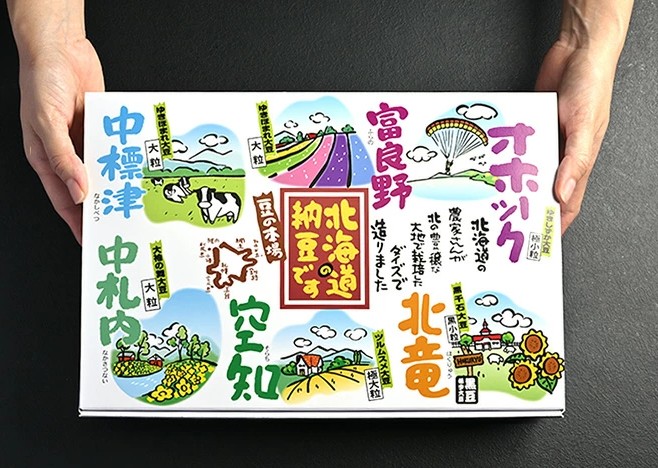 中標津
なかしべつ
ゆきほまれ大豆
大粒
ゆきほまれ大豆
大粒
富良野
ふらの
オホーツク
ゆきしずか大豆
極小粒
北海道の
農家さんが
北の豊穣な
大地で栽培した
ダイズで
造りました
北海道の
納豆です
豆の本場
中札内
なかさつない
大袖の舞大豆
大粒
空知
そらち
ツルムスメ大豆
極大粒
北竜
ほくりゅう
黒千石大豆
黒小粒
黒豆